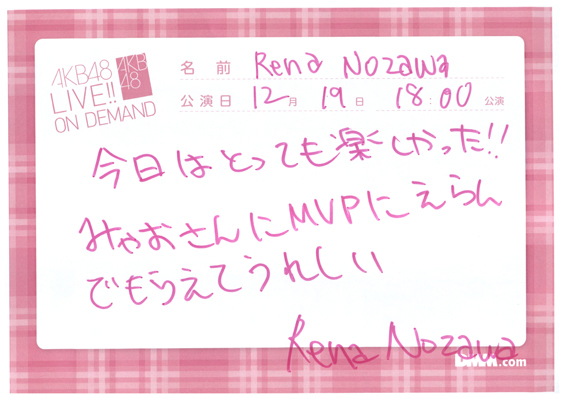 AKB48
LIVE!!
ON DEMAND
AKB
48
名前 Rena Nozawa
公演日 12月 19日 18:00 公演
今日はとっても楽しかった!!
みゃおさんにMVPにえらん
でもらえてうれしい
Rena Nozawa
.com